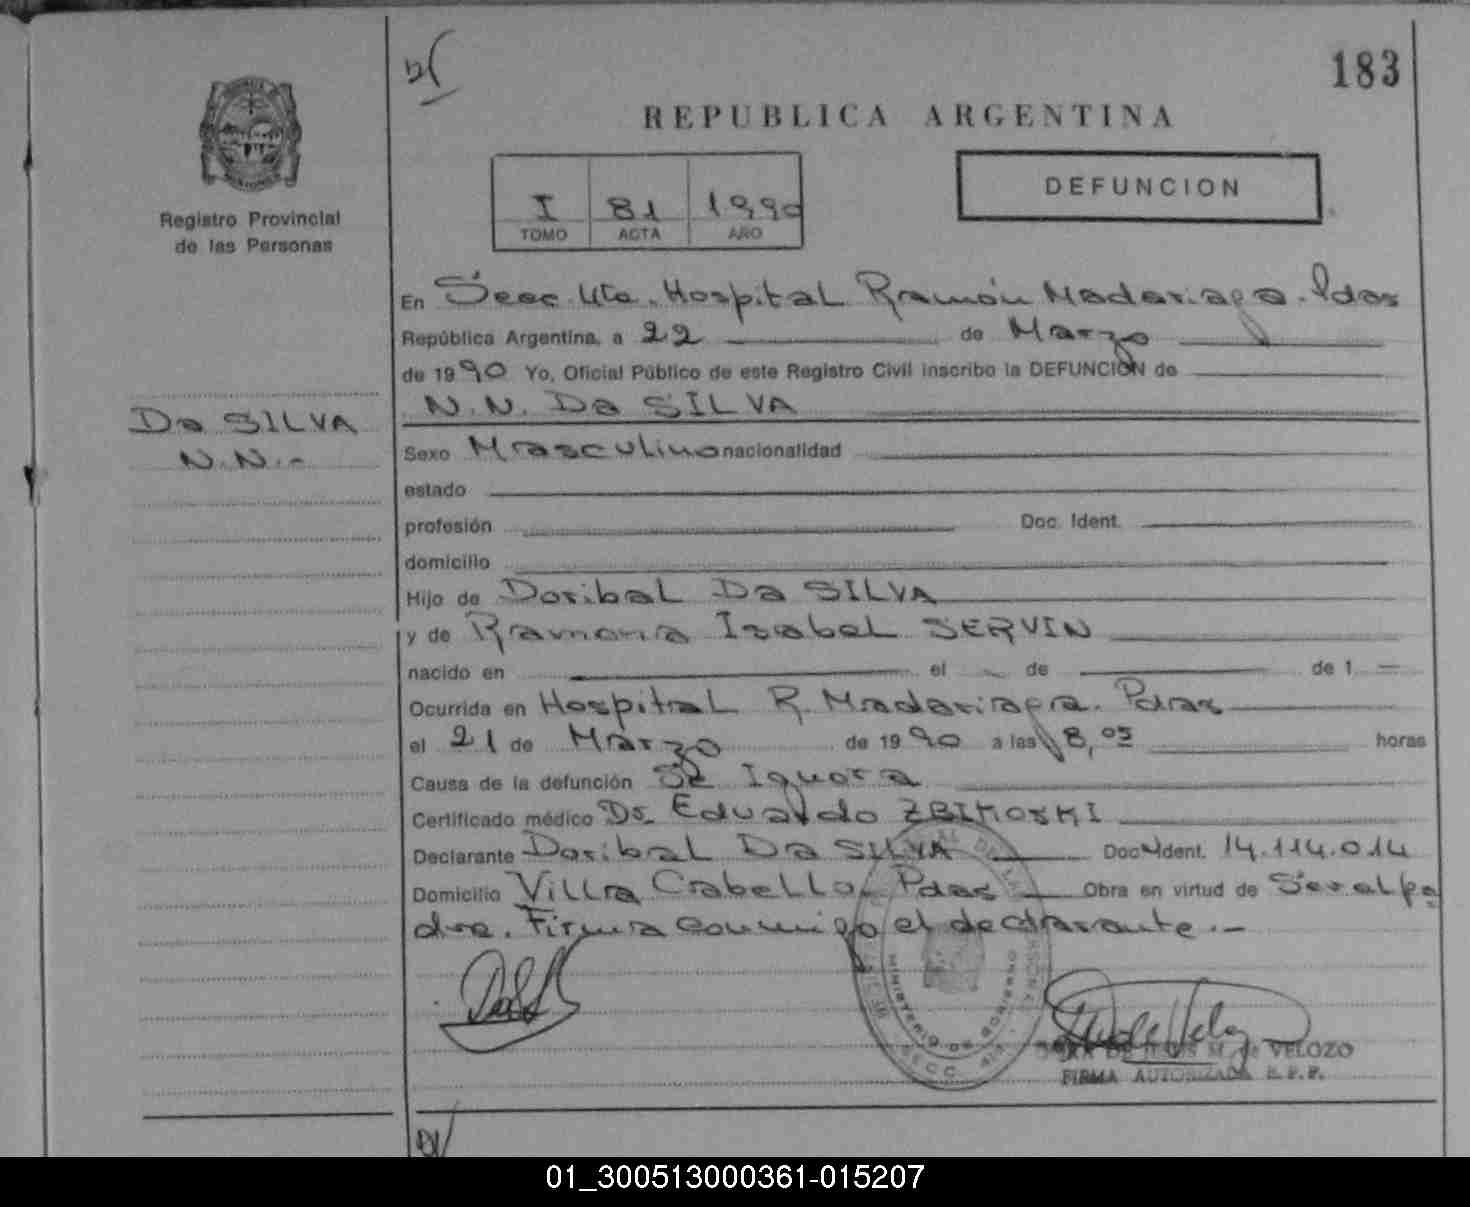 183
REPUBLICA ARGENTINA
Registro Provincial
de las Personas
I 81 1990
TOMO ACTA AÑO
DEFUNCION
En Secc. 4ta. Hospital Ramón Madariaga. Pdas
República Argentina, a 22 de Marzo
de 1990 Yo, Oficial Público de este Registro Civil inscribo la DEFUNCIÓN de
N.N. Da SILVA
Da SILVA
N.N.-
Sexo Masculino nacionalidad
estado
profesión Doc. Ident.
domicilio
Hijo de Doribal Da SILVA
y de Ramona Isabel SERVIN
nacido en el de de 1
Ocurrida en Hospital R. Madariaga. Pdas
el 21 de Marzo de 1990 a las 8,05 horas
Causa de la defunción Se Ignora
Certificado médico Dr. Eduardo ZBIKOSKI
Declarante Doribal Da SILVA Doc. Ident. 14.114.014
Domicilio Villa Cabello. Pdas Obra en virtud de Ser el pa
dre. Firma conmigo el declarante.-
MINISTERIO DE GOBIERNO
SECC. 4ta
DE JESUS M. de VELOZO
FIRMA AUTORIZADA R.P.P.
01_300513000361-015207